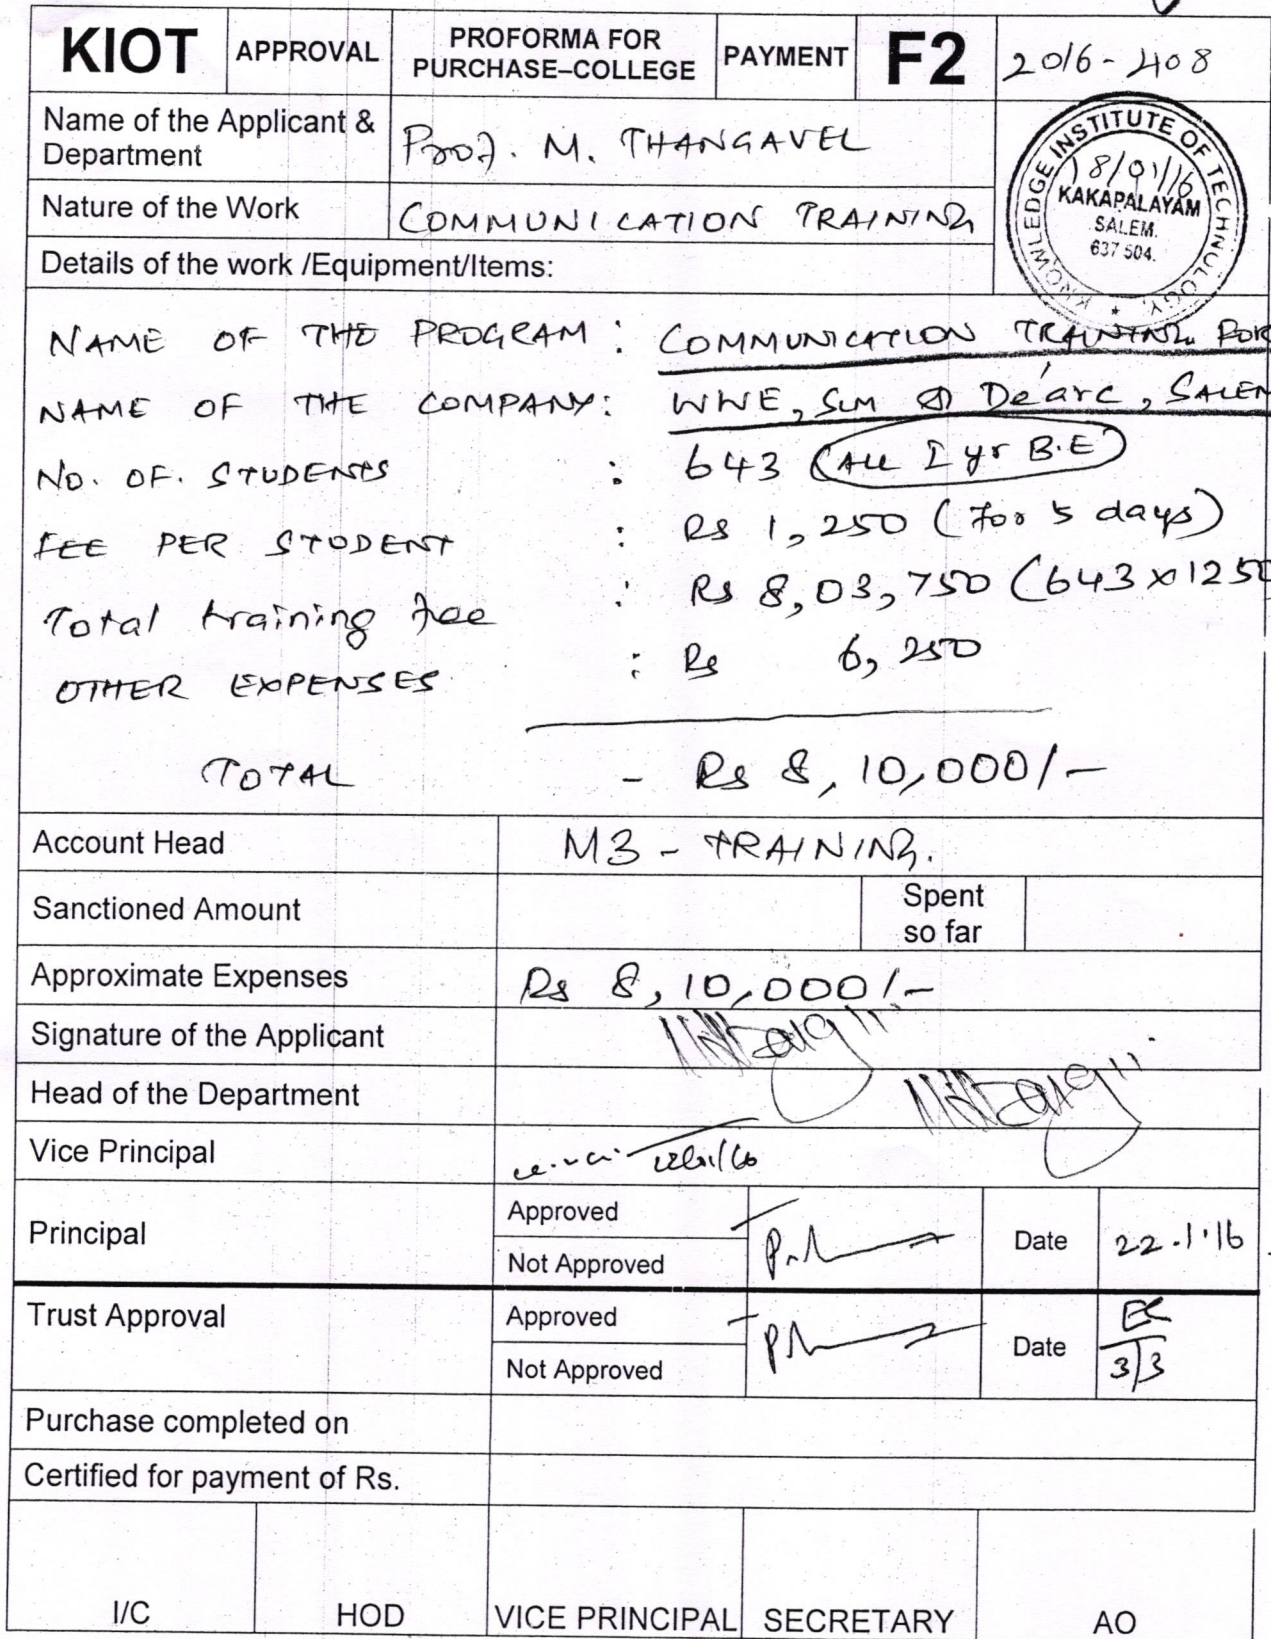 KIOT APPROVAL PROFORMA FOR PURCHASE–COLLEGE PAYMENT F2 2016-408
Name of the Applicant & Department Prof. M. THANGAVEL
KNOWLEDGE INSTITUTE OF TECHNOLOGY
18/01/16
KAKAPALAYAM
SALEM.
637 504.
Nature of the Work COMMUNICATION TRAINING
Details of the work /Equipment/Items:
NAME OF THE PROGRAM : COMMUNICATION TRAINING FOR
NAME OF THE COMPANY: WWE, SLM & De'arc, SALEM
NO. OF. STUDENTS : 643 (ALL I yr B.E)
FEE PER STUDENT : Rs 1,250 (for 5 days)
Total training fee : Rs 8,03,750 (643x1250
OTHER EXPENSES : Rs 6,250
TOTAL - Rs 8,10,000/-
Account Head M3 - TRAINING.
Sanctioned Amount Spent so far
Approximate Expenses Rs 8,10,000/-
Signature of the Applicant
Head of the Department
Vice Principal
Principal Approved Date 22.1.16
Not Approved
Trust Approval Approved Date EC 3/3
Not Approved
Purchase completed on
Certified for payment of Rs.
I/C HOD VICE PRINCIPAL SECRETARY AO